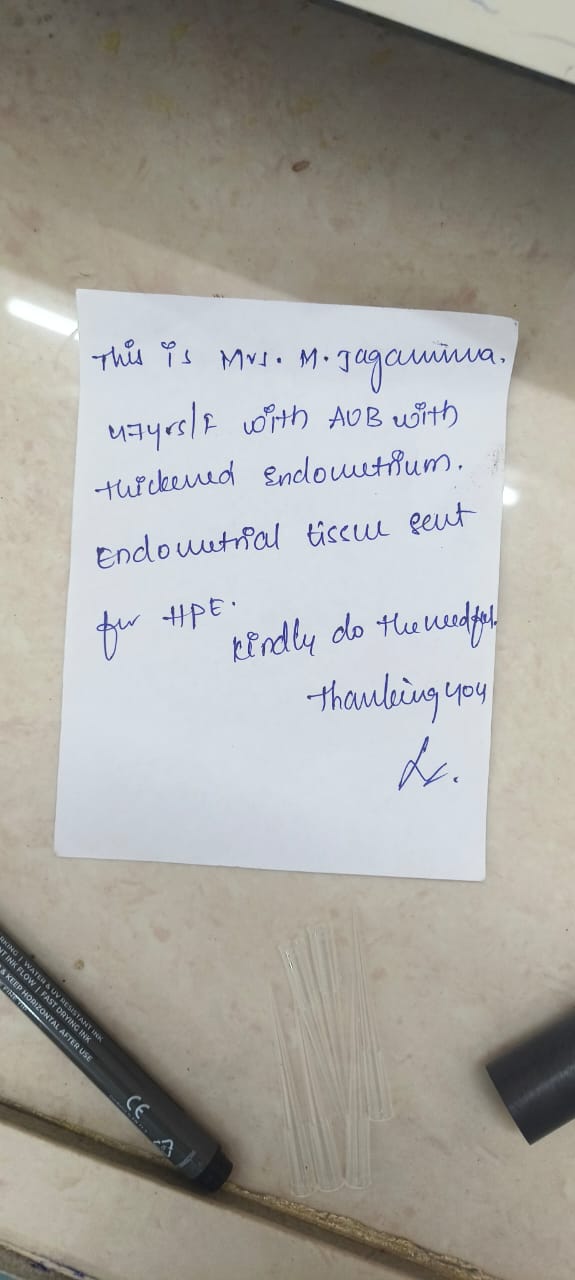 This is Mrs. M. Jagamma.
47yrs/F with AUB with
thickened Endometrium.
Endometrial tissue sent
for HPE.
Kindly do the needful.
Thanking you
WATER & UV RESISTANT INK
INK FLOW | FAST DRYING INK
& KEEP HORIZONTAL AFTER USE
CE